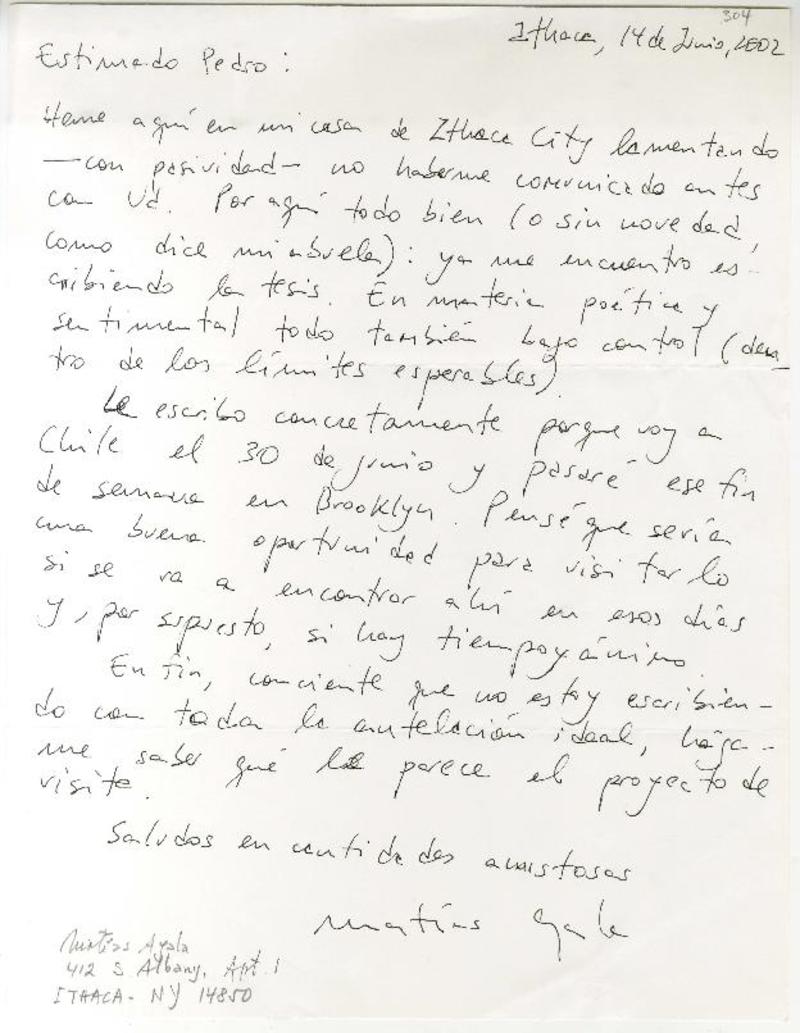 304
Ithaca, 14 de Junio, 2002
Estimado Pedro:
Heme aquí en mi casa de Ithaca City lamentando
—con pasividad— no haberme comunicado antes
con Ud. Por aquí todo bien (o sin novedad,
como dice mi abuela): ya me encuentro es-
cribiendo la tesis. En materia poética y
sentimental todo también bajo control (den_
tro de los límites esperables).
Le escribo concretamente porque voy a
Chile el 30 de junio y pasaré ese fin
de semana en Brooklyn. Pensé que sería
una buena oportunidad para visitarlo
si se va a encontrar ahí en esos días
y, por supuesto, si hay tiempo y ánimo.
En fin, conciente que no estoy escribien-
do con toda la antelación ideal, hága-
me saber qué le parece el proyecto de
visita.
Saludos en cantidades amistosas
Matías Ayala
Matías Ayala
412 S Albany, Apt. 1
ITHACA - NY 14850